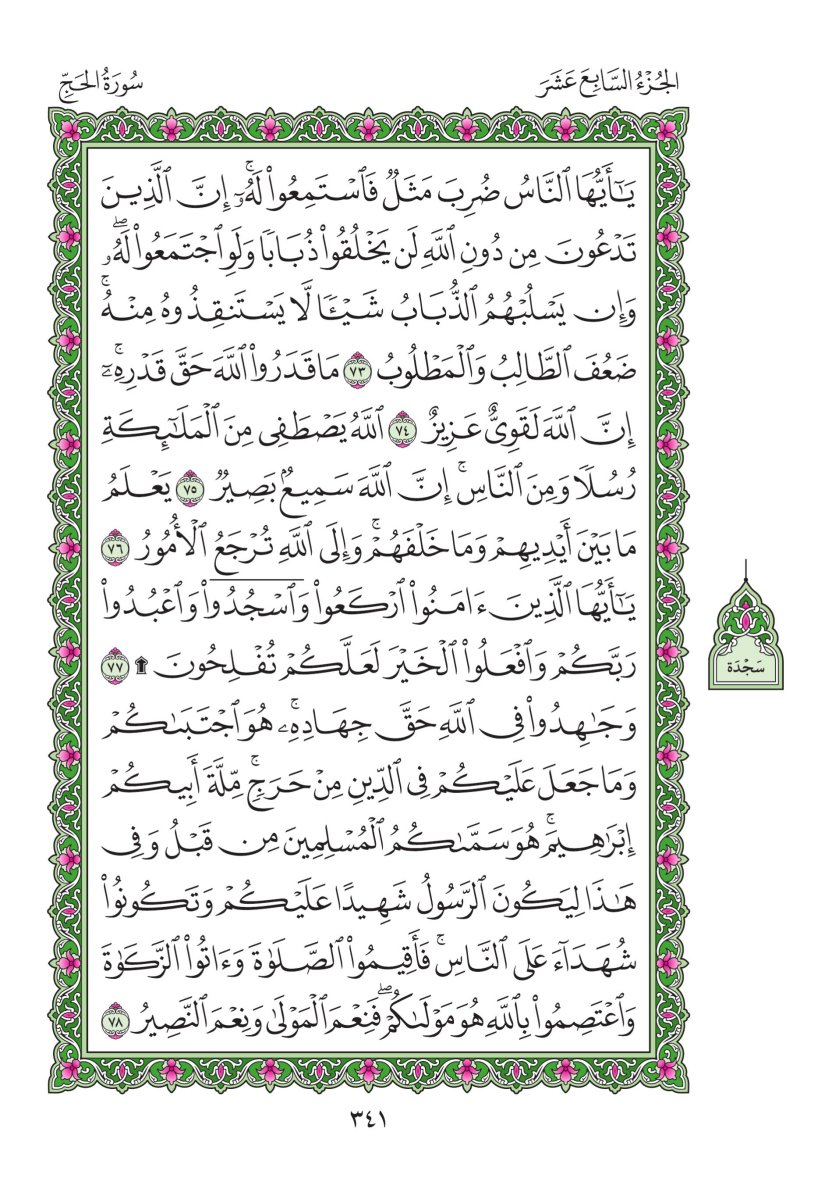 الجُزْءُ السَّابِعَ عَشَرَ
سُورَةُ الحَجِّ
يَٰٓأَيُّهَا ٱلنَّاسُ ضُرِبَ مَثَلٞ فَٱسۡتَمِعُواْ لَهُۥٓۚ إِنَّ ٱلَّذِينَ
تَدۡعُونَ مِن دُونِ ٱللَّهِ لَن يَخۡلُقُواْ ذُبَابٗا وَلَوِ ٱجۡتَمَعُواْ لَهُۥۖ
وَإِن يَسۡلُبۡهُمُ ٱلذُّبَابُ شَيۡـٔٗا لَّا يَسۡتَنقِذُوهُ مِنۡهُۚ
ضَعُفَ ٱلطَّالِبُ وَٱلۡمَطۡلُوبُ ٧٣ مَا قَدَرُواْ ٱللَّهَ حَقَّ قَدۡرِهِۦٓۚ
إِنَّ ٱللَّهَ لَقَوِيٌّ عَزِيزٌ ٧٤ ٱللَّهُ يَصۡطَفِي مِنَ ٱلۡمَلَٰٓئِكَةِ
رُسُلٗا وَمِنَ ٱلنَّاسِۚ إِنَّ ٱللَّهَ سَمِيعُۢ بَصِيرٞ ٧٥ يَعۡلَمُ
مَا بَيۡنَ أَيۡدِيهِمۡ وَمَا خَلۡفَهُمۡۚ وَإِلَى ٱللَّهِ تُرۡجَعُ ٱلۡأُمُورُ ٧٦
يَٰٓأَيُّهَا ٱلَّذِينَ ءَامَنُواْ ٱرۡكَعُواْ وَٱسۡجُدُواْ وَٱعۡبُدُواْ
رَبَّكُمۡ وَٱفۡعَلُواْ ٱلۡخَيۡرَ لَعَلَّكُمۡ تُفۡلِحُونَ ۩ ٧٧
سَجْدَة
وَجَٰهِدُواْ فِي ٱللَّهِ حَقَّ جِهَادِهِۦۚ هُوَ ٱجۡتَبَىٰكُمۡ
وَمَا جَعَلَ عَلَيۡكُمۡ فِي ٱلدِّينِ مِنۡ حَرَجٖۚ مِّلَّةَ أَبِيكُمۡ
إِبۡرَٰهِيمَۚ هُوَ سَمَّىٰكُمُ ٱلۡمُسۡلِمِينَ مِن قَبۡلُ وَفِي
هَٰذَا لِيَكُونَ ٱلرَّسُولُ شَهِيدًا عَلَيۡكُمۡ وَتَكُونُواْ
شُهَدَآءَ عَلَى ٱلنَّاسِۚ فَأَقِيمُواْ ٱلصَّلَوٰةَ وَءَاتُواْ ٱلزَّكَوٰةَ
وَٱعۡتَصِمُواْ بِٱللَّهِ هُوَ مَوۡلَىٰكُمۡۖ فَنِعۡمَ ٱلۡمَوۡلَىٰ وَنِعۡمَ ٱلنَّصِيرُ ٧٨
٣٤١